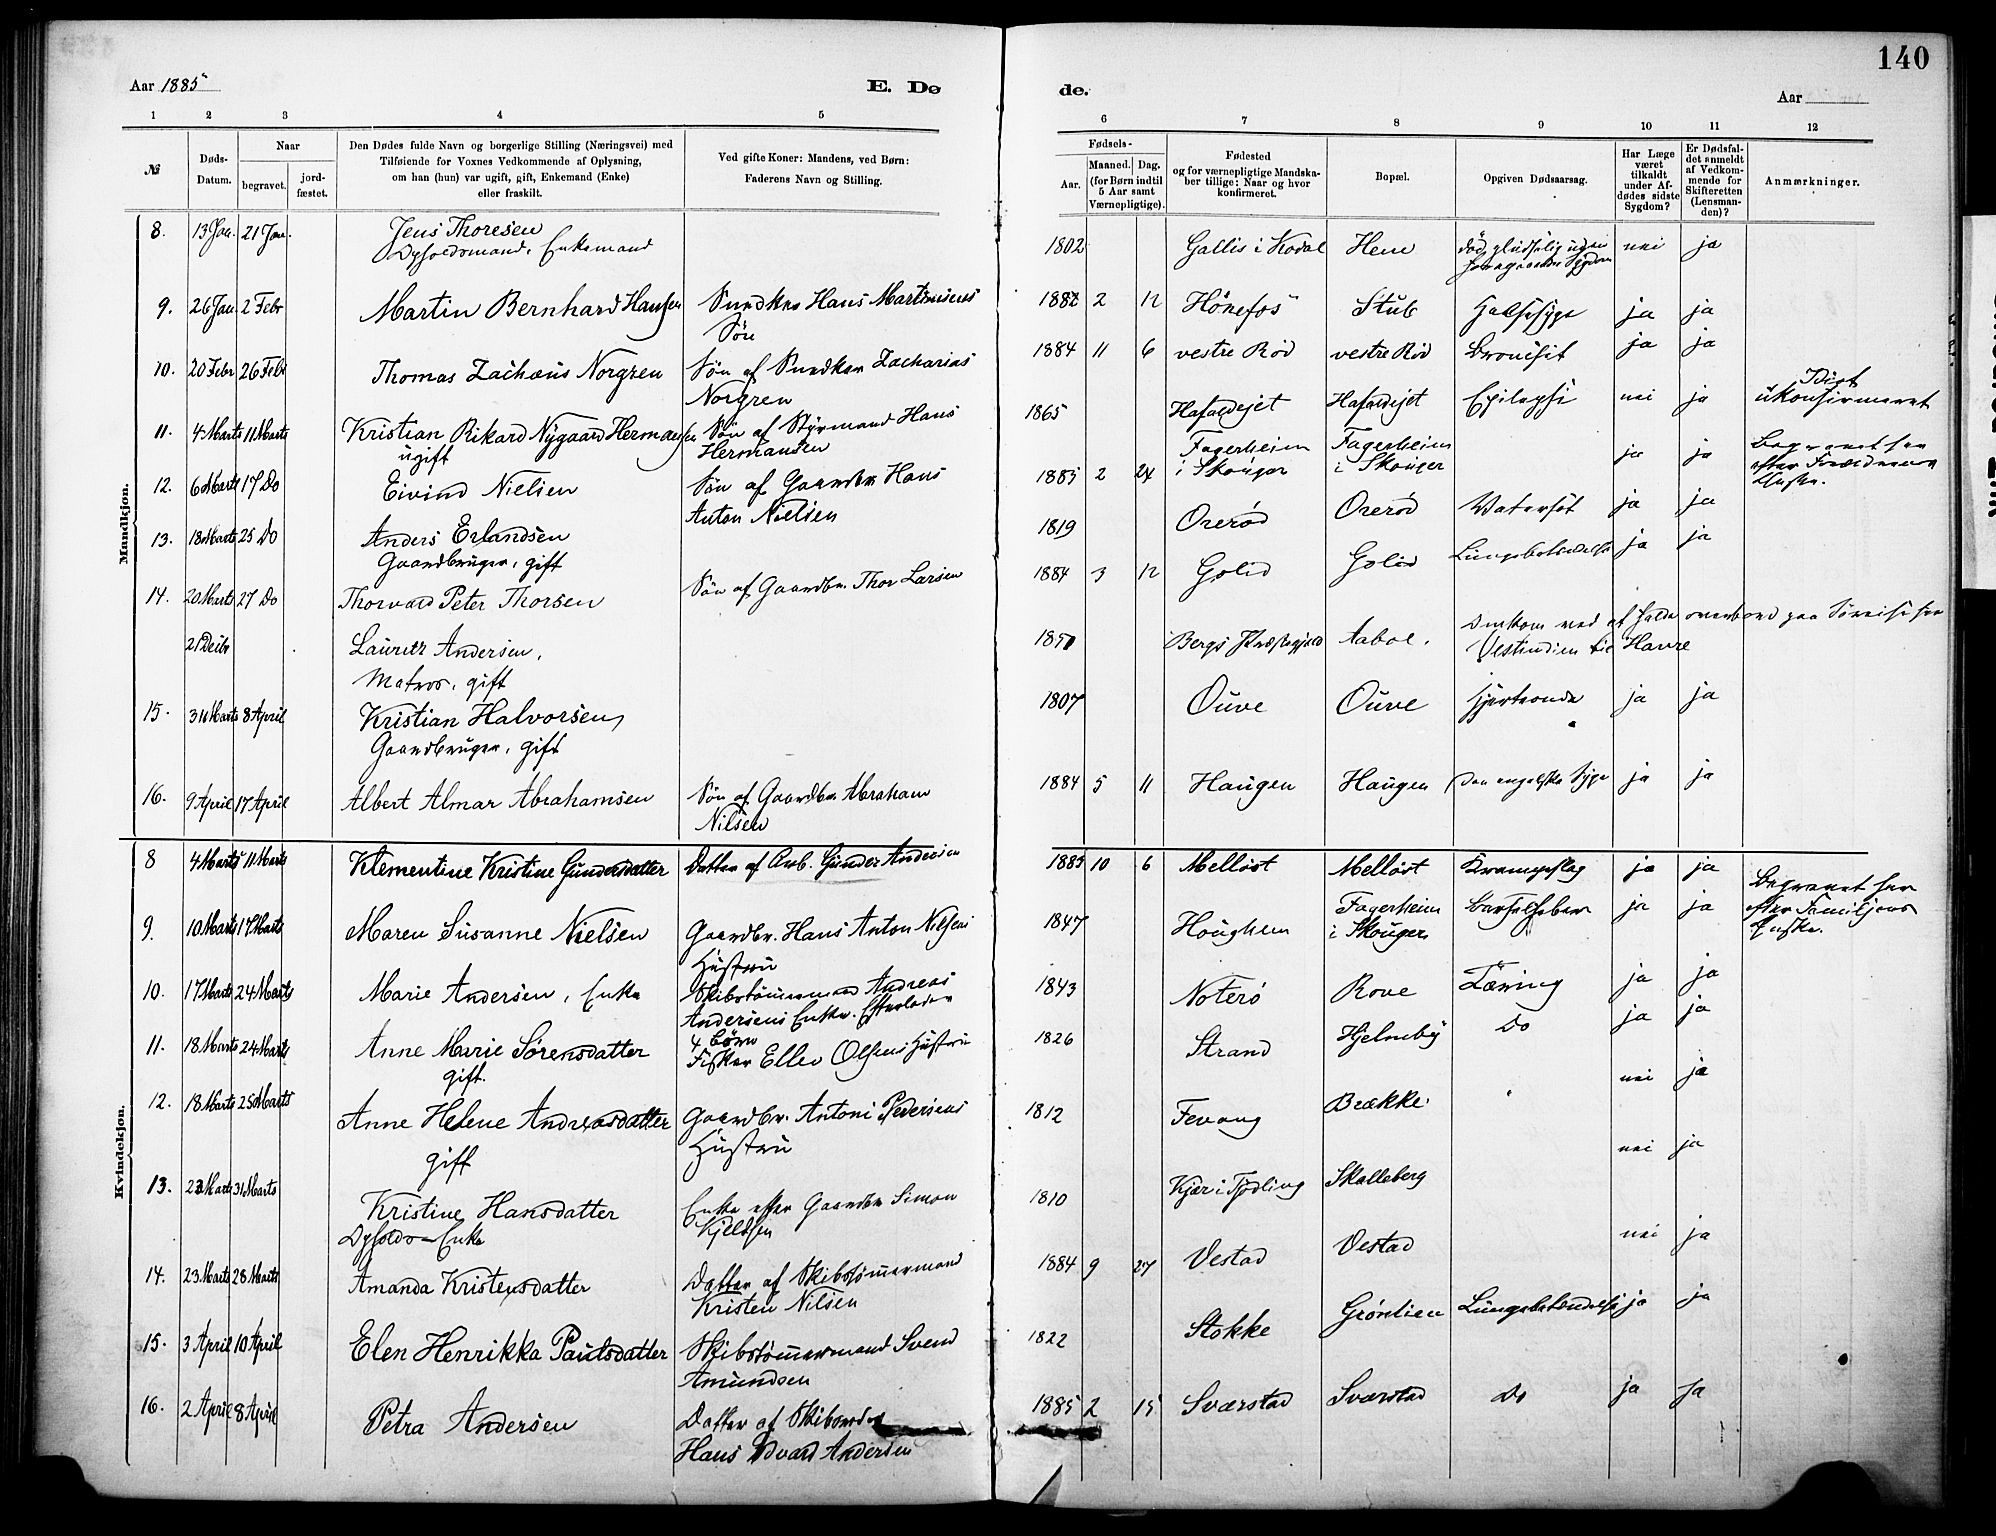 140
Aar 1885
E. Døde.
Aar
1 2 3 4 5 6 7 8 9 10 11 12
№
Døds-Datum.
Naar
begravet.
jord-fæstet.
Den Dødes fulde Navn og borgerlige Stilling (Næringsvei) med
Tilføiende for Voxnes Vedkommende af Oplysning,
om han (hun) var ugift, gift, Enkemand (Enke)
eller fraskilt.
Ved gifte Koner: Mandens, ved Børn:
Faderens Navn og Stilling.
Fødsels-
Aar.
Maaned. Dag.
(for Børn indtil
5 Aar samt
Værnepligtige).
Fødested
og for værnepligtige Mandska-
ber tillige: Naar og hvor
konfirmeret.
Bopæl.
Opgiven Dødsaarsag.
Har Læge
været
tilkaldt
under Af-
dødes sidste
Sygdom?
Er Dødsfal-
det anmeldt
af Vedkom-
mende for
Skifteretten
(Lensman-
den)?
Anmærkninger.
Mandkjøn.
8. 13 Jan. 21 Jan. Jens Thoresen 1802 Gallis i Kodal Hem død pludselig uden nei ja
Enkemand
9. 26 Jan 2 Febr Martin Bernhard Hansen Snedker Hans Martinsens 1882 2 12 Hönefos Stub Halssyge ja ja
Søn
10. 20 Febr 26 Febr Thomas Zachæus Norgren Søn af Snedker Zacharias 1884 11 6 vestre Rød vestre Rød Bronchit ja ja
Norgren
11. 4 Marts 11 Marts Kristian Rikard Nygaard Hermansen Søn af Styrmand Hans 1865 Epilepsi nei ja Idiot
ugift Hermansen ukonfirmeret
12. 6 Marts 17 Do Eivind Nielsen Søn af Gaardbr. Hans 1885 2 24 Fagerheim Fagerheim ja ja Begravet her
Anton Nielsen i Skouger i Skouger efter Forældrenes
Ønske.
13. 18 Marts 25 Do Anders Erlandsen 1819 Orerød Orerød Watersot ja ja
Gaardbruger, gift
14. 20 Marts 27 Do Thorvald Peter Thorsen Søn af Gaardbr. Thor Larsen 1884 3 12 Golid Golid Lungebetændelse ja ja
21 Decbr Lauritz Andersen, Bergs Præstegjæld Aabol. Omkom ved at falde overbord paa Søreise fra
Matros, gift Vestindien til Havre
15. 31 Marts 8 April Kristian Halvorsen, 1807 Ouve Ouve Hjerteonde ja ja
Gaardbruger, gift
16. 9 April 17 April Albert Almar Abrahamsen Søn af Gaardbr. Abraham 1884 5 11 Haugen Haugen Den engelske Syge ja ja
Nilsen
Kvindekjøn.
8 4 Marts 11 Marts Klementine Kristine Gundersdatter Datter af Arb. Gunder Andersen 10 6 Melløst Melløst Krampeslag ja ja
9. 10 Marts 17 Marts Maren Susanne Nielsen Gaardbr. Hans Anton Nilsens 1847 Haughem Fagerheim Barselfeber ja ja Begravet her
Hustru i Skouger efter Familjens
Ønske.
10. 17 Marts 24 Marts Marie Andersen, Enke Skibstømmermand Andreas 1843 Noterö Rove Tæring ja ja
Andersens Enke. Efterlader
4 børn
11. 18 Marts 24 Marts Anne Marie Sørensdatter Fisker Ellev Olsens Hustru 1826 Strand Hjelmby Do ja ja
gift.
12. 18 Marts 25 Marts Anne Helene Andreasdatter Gaardbr. Antoni Pedersens 1812 Fevang Brække nei ja
gift Hustru
13. 23 Marts 31 Marts Kristine Hansdatter Enke efter Gaardbr. Simon 1810 Kjær i Tjødling Skalleberg nei ja
Enke Kjeldsen
14. 23 Marts 28 Marts Amanda Kristensdatter Datter af Skibstømmermand 1884 9 27 Vestad Vestad nei ja
Kristen Nilsen
15. 3 April 10 April Elen Henrikka Paulsdatter Skibstømmermand Svend 1822 Stokke Grönlien Lungebetændelse ja ja
Amundsen
16. 2 April 8 April Petra Andersen Datter af 1885 2 15 Sværstad Sværstad Do ja ja
Hans Edvard Andersen